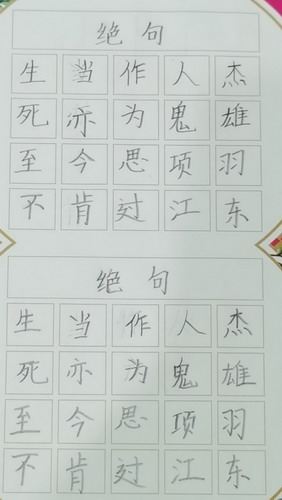 绝句
生当作人杰
死亦为鬼雄
至今思项羽
不肯过江东
绝句
生当作人杰
死亦为鬼雄
至今思项羽
不肯过江东